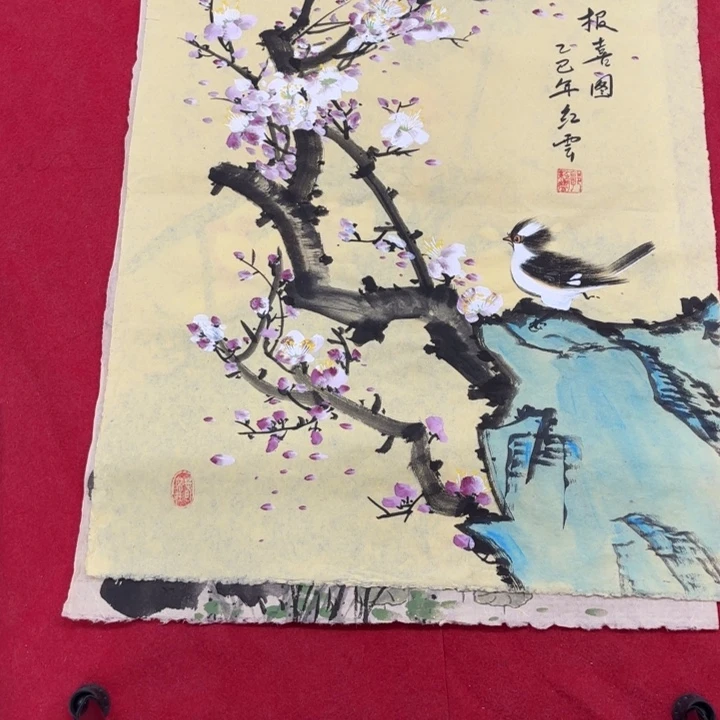 报喜图
乙巳年红雲